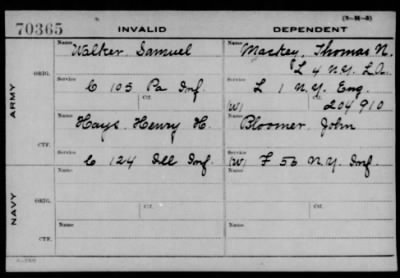 (3-M-8)
70365 INVALID DEPENDENT
Name Walker, Samuel Name Mackey, Thomas N.
L 4 N.Y. L.A.
ARMY ORIG. Service C 105 Pa Inf Service L 1 N.Y. Eng.
Ctf. (W) Ctf. 204910
Name Hays, Henry H. Name Bloomer, John
CTF. Service C 124 Ill Inf. Service (W) F 56 N.Y. Inf.
Name Name
NAVY ORIG. Ctf. Ctf.
Name Name
CTF.